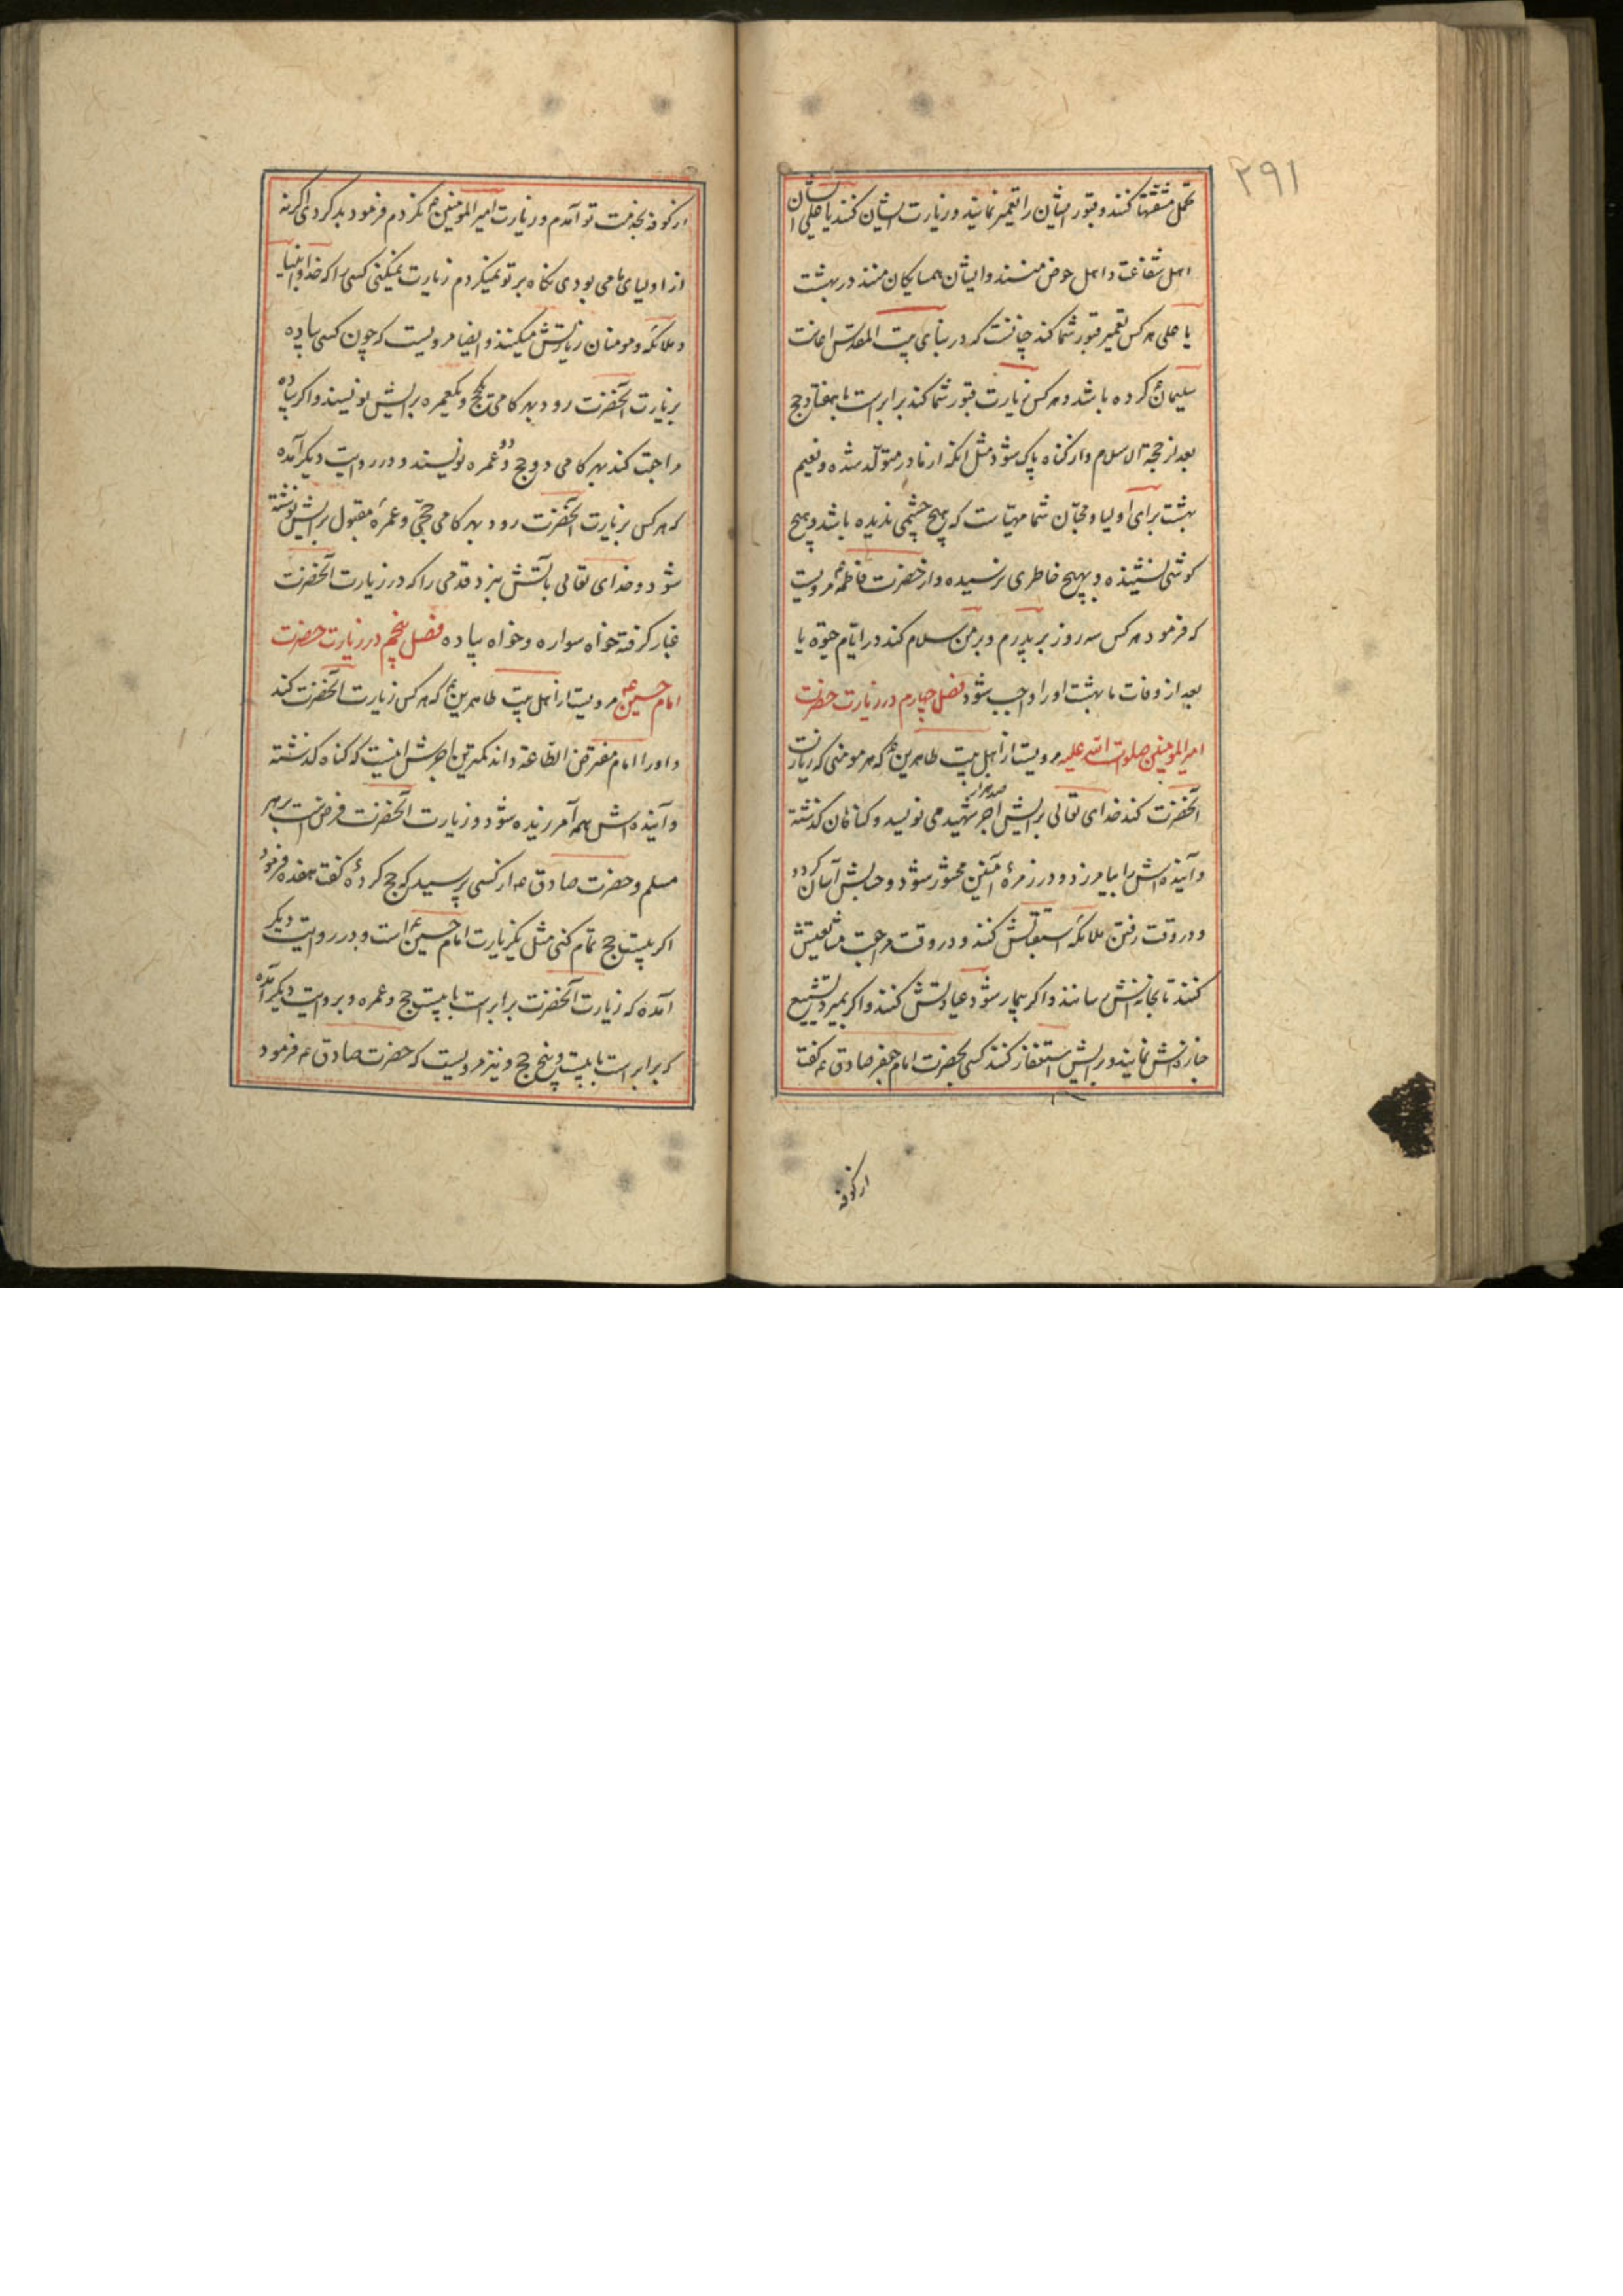 ۲۹۱
تحمل مشقتها کنند و قبور ایشان را تعمیر نمایند و زیارت ایشان کنند یا علی ایشان
اهل شفاعت و اهل حوض منند و ایشان همسایکان منند در بهشت
یا علی هر کس تعمیر قبور شما کند چنانست که در بنای بیت المقدس اعانت
سلیمان کرده باشد و هر کس زیارت قبور شما کند برابر است با هفتاد حج
بعد از حجة الاسلام و از کناه پاک شود مثل آنکه از مادر متولد شده و نعیم
بهشت برای اولیا و محبان شما مهیاست که هیچ چشمی ندیده باشد و هیچ
کوشی نشنیده و بهیچ خاطری نرسیده و از حضرت فاطمهٴ مرویست
که فرمود هر کس سه روز بر پدرم و بر من سلام کند در ایام حیوة یا
بعد از وفات ما بهشت او را واجب شود فصل چهارم در زیارت حضرت
امیر المومنین صلوات الله علیه مرویست از اهل بیت طاهرینٴ که هر مومنی که زیارت
آنحضرت کند خدای تعالی برایش اجر صد هزار شهید می نویسد و کناهان کذشته
و آینده اش را بیامرزد و در زمرهٔ آمنین محشور شود و حسابش آسان کردد
و در وقت رفتن ملائکه استقبالش کنند و در وقت مراجعت مشایعتش
کنند تا بخانه اش رسانند و اکر بیمار شود عیادتش کنند و اکر بمیرد تشییع
جنازه اش نمایند و برایش استغفار کنند کسی بحضرت امام جعفر صادق ع کفت
از کوفه
از کوفه بخدمت تو آمدم و زیارت امیر المومنینٴ نکردم فرمود بد کردی اکر نه
از اولیای ما می بودی نکاه بر تو نمیکردم زیارت نمیکنی کسی را که خدا و انبیا
و ملائکه و مومنان زیارتش میکنند و ایضا مرویست که چون کسی پیاده
بزیارت آنحضرت رود بهر کامی یکحج و یکعمره برایش نویسند و اکر پیاده
مراجعت کند بهر کامی دو حج و دو عمره نویسند و در روایت دیکر آمده
که هر کس بزیارت آنحضرت رود بهر کامی حجی و عمرهٔ مقبول برایش نوشته
شود و خدای تعالی بآتش نبرد قدمی را که در زیارت آنحضرت
غبار کرفته خواه سواره و خواه پیاده فصل پنجم در زیارت حضرت
امام حسین ع مرویست از اهل بیت طاهرینٴ که هر کس زیارت آنحضرت کند
و او را امام مفترض الطاعة داند کمترین اجرش اینست که کناه کذشته
و آینده اش همه آمرزیده شود و زیارت آنحضرت فرض است بر هر
مسلم و حضرت صادق ع از کسی پرسید که حج کردهٔ کفت هفده فرمود
اکر بیست حج تمام کنی مثل یکزیارت امام حسینٴ است و در روایت دیکر
آمده که زیارت آنحضرت برابر است با بیست حج و عمره و بروایت دیکر آمده
که برابر است با بیست و پنج حج و نیز مرویست که حضرت صادق ع فرمود